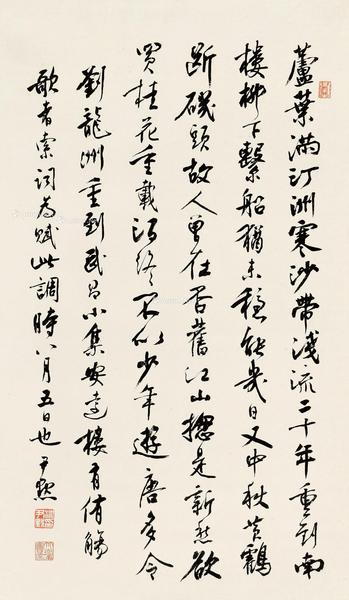 蘆葉滿汀洲寒沙帶淺流二十年重到南
樓柳下繫船猶未穩能幾日又中秋黃鶴
斷磯頭故人曾在否舊江山揔是新愁欲
買桂花重載酒終不似少年遊唐多令
劉龍洲重到武昌小集安遠樓有侑觴
歌者索詞為賦此調時八月五日也尹默